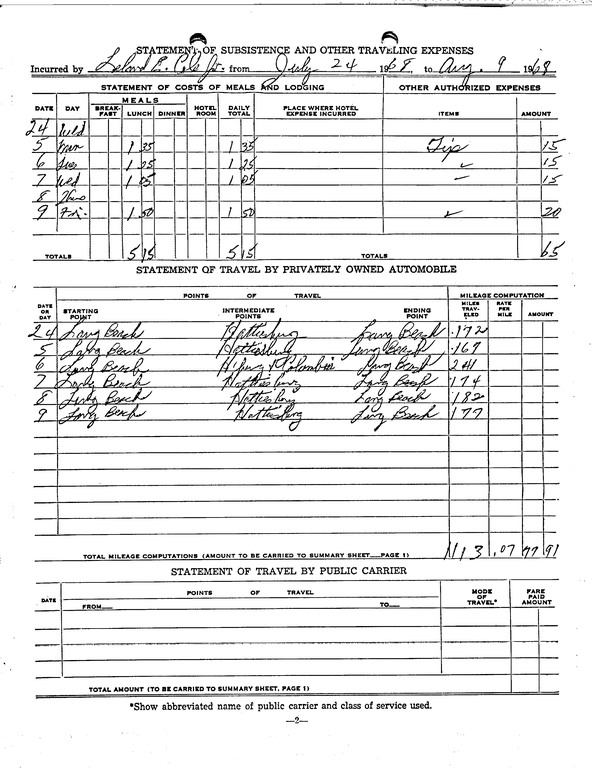 STATEMENT OF SUBSISTENCE AND OTHER TRAVELING EXPENSES
Incurred by Leland E. Cole Jr. from July 24 1968, to Aug. 9 1968
STATEMENT OF COSTS OF MEALS AND LODGING OTHER AUTHORIZED EXPENSES
DATE DAY MEALS BREAK-FAST LUNCH DINNER HOTEL ROOM DAILY TOTAL PLACE WHERE HOTEL EXPENSE INCURRED ITEMS AMOUNT
24 Wed
5 Mon 1 35 1 35 Tip 15
6 Tues 1 25 1 25 ✓ 15
7 Wed 1 05 1 05 — 15
8 Thurs
9 Fri. 1 50 1 50 ✓ 20
TOTALS 5 15 5 15 TOTALS 65
STATEMENT OF TRAVEL BY PRIVATELY OWNED AUTOMOBILE
DATE OR DAY POINTS OF TRAVEL MILEAGE COMPUTATION
STARTING POINT INTERMEDIATE POINTS ENDING POINT MILES TRAV-ELED RATE PER MILE AMOUNT
24 Long Beach Hattiesburg Long Beach 172
5 Long Beach Hattiesburg Long Beach 167
6 Long Beach Columbia Long Beach 241
7 Long Beach Hattiesburg Long Beach 174
8 Long Beach Hattiesburg Long Beach 182
9 Long Beach Hattiesburg Long Beach 177
TOTAL MILEAGE COMPUTATIONS (AMOUNT TO BE CARRIED TO SUMMARY SHEET__PAGE 1) 1113 .07 77 91
STATEMENT OF TRAVEL BY PUBLIC CARRIER
DATE POINTS OF TRAVEL MODE OF TRAVEL* FARE PAID AMOUNT
FROM__ TO__
TOTAL AMOUNT (TO BE CARRIED TO SUMMARY SHEET, PAGE 1)
*Show abbreviated name of public carrier and class of service used.
—2—